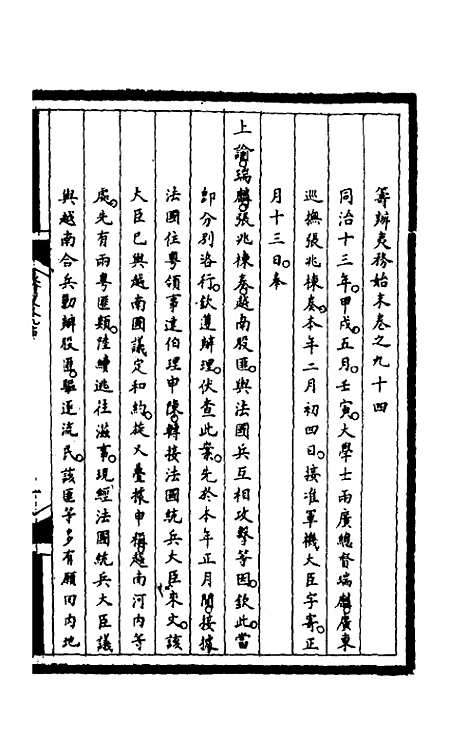 籌辦夷務始末卷之九十四
同治十三年。甲戌。五月。壬寅。大學士兩廣總督瑞麟。廣東
巡撫張兆棟奏。本年二月初四日。接准軍機大臣字寄。正
月十三日。奉
上諭。瑞麟。張兆棟奏。越南股匪。與法國兵互相攻擊等因。欽此。當
卽分別洛行。欽遵辦理。伏查此案。先於本年正月間。接據
法國住粵領事達伯理申陳。轉接法國統兵大臣來文。該
大臣已與越南國議定和約。旋又疊據申稱。越南河內等
處。先有兩粵匪類。陸續逃往滋事。現經法國統兵大臣議
與越南合兵勦辦股匪。驅逐流民。該匪等多有願回內地